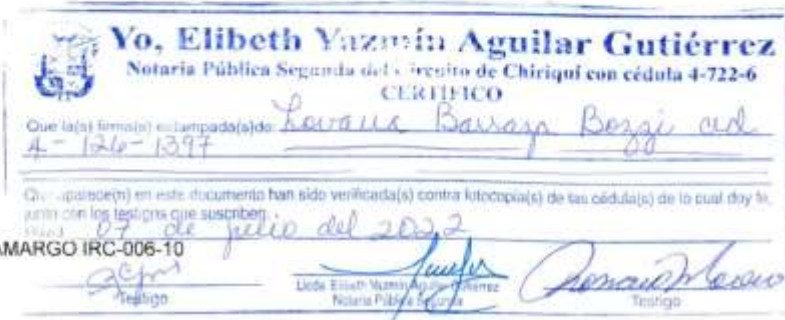 Yo, Elibeth Yazmín Aguilar Gutiérrez
Notaria Pública Segunda del Circuito de Chiriquí con cédula 4-722-6
CERTIFICO
Que la(s) firma(s) estampada(s) de: Barraza Bozzi ced
4-126-1397
Que aparece(n) en este documento han sido verificada(s) contra fotocopia(s) de las cédula(s) de lo cual doy fe,
junto con los testigos que suscriben.
07 de julio del 2022
AMARGO IRC-006-10
Testigo
Licda Elibeth Yazmín Aguilar Gutiérrez
Notaria Pública Segunda
Testigo